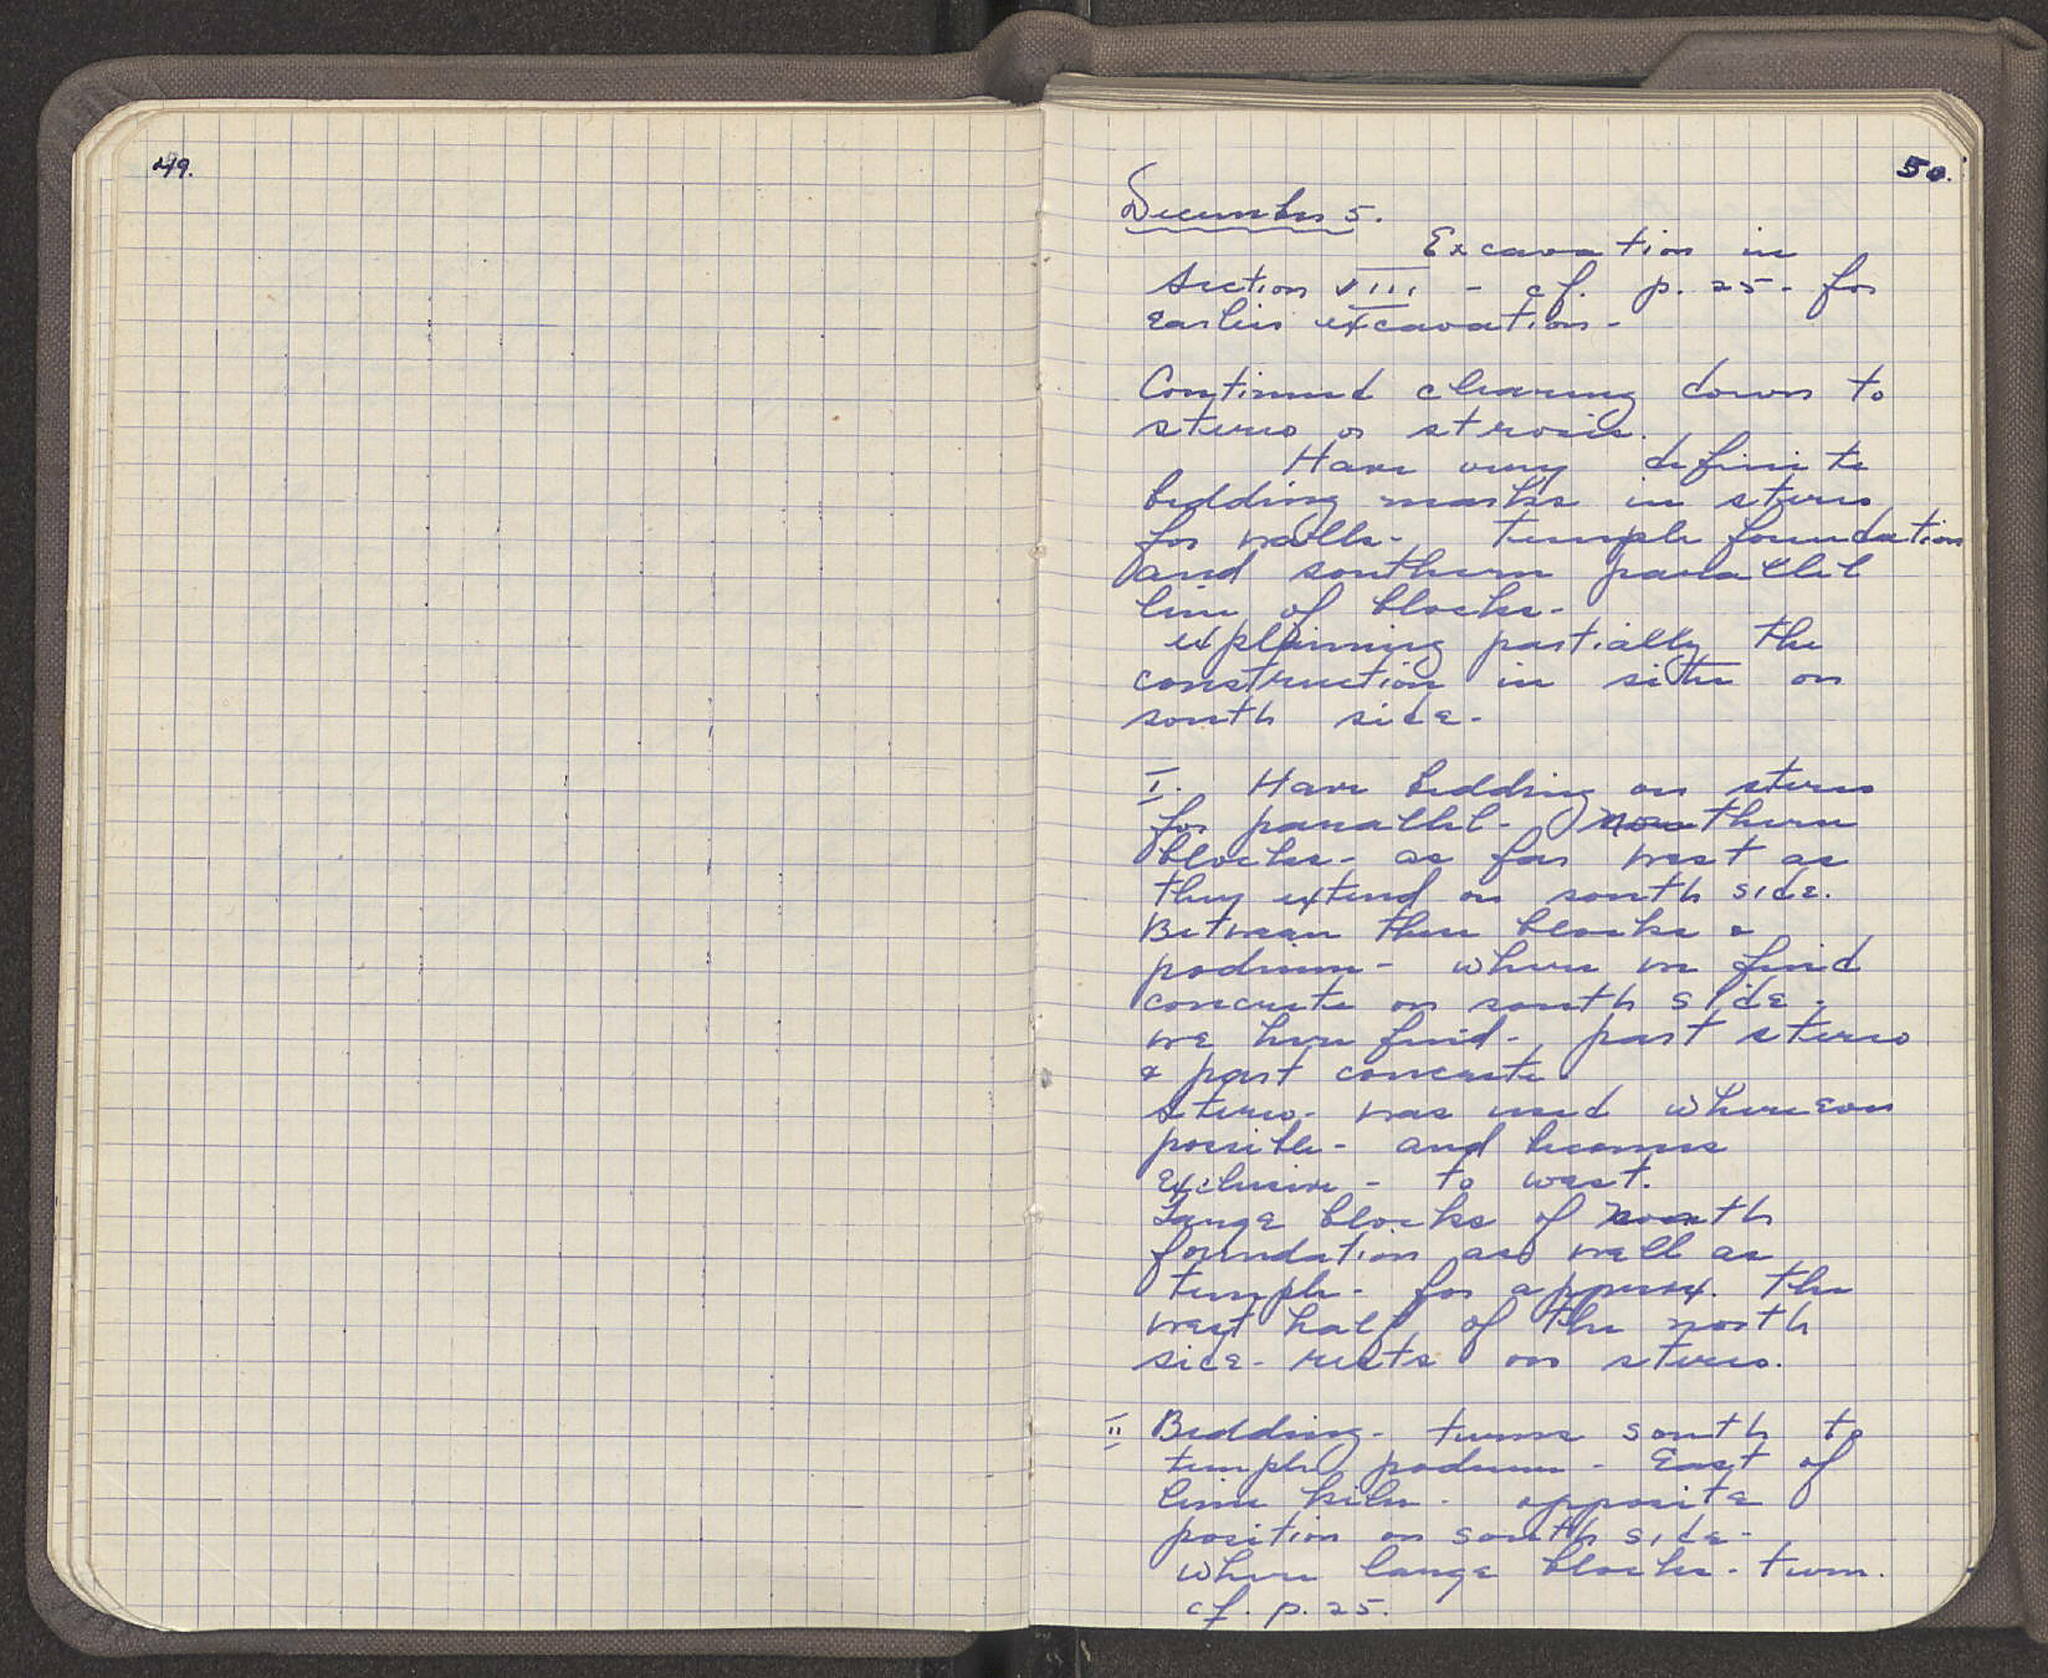 49.
50.
December 5.
Excavation in
Section VIII - cf. p. 25 - for
earlier excavation -
Continued clearing down to
stereo or strosis.
Have very definite
bedding marks in stereo
for walls - temple foundation
and southern parallel
line of blocks -
explaining partially the
construction in situ on
south side -
I. Have bedding on stereo
for parallel - northern
blocks - as far west as
they extend on south side.
Between these blocks &
podium - where we find
concrete on south side -
we here find - part stereo
& part concrete.
Stereo - was used whereever
possible - and becomes
exclusive - to west.
Large blocks of north
foundation as well as
temple - for approx. the
west half of the north
side - rests on stereo.
II Bedding - turns south to
temple podium - East of
lime kiln - opposite
position on south side -
where large blocks - turn.
cf. p. 25.